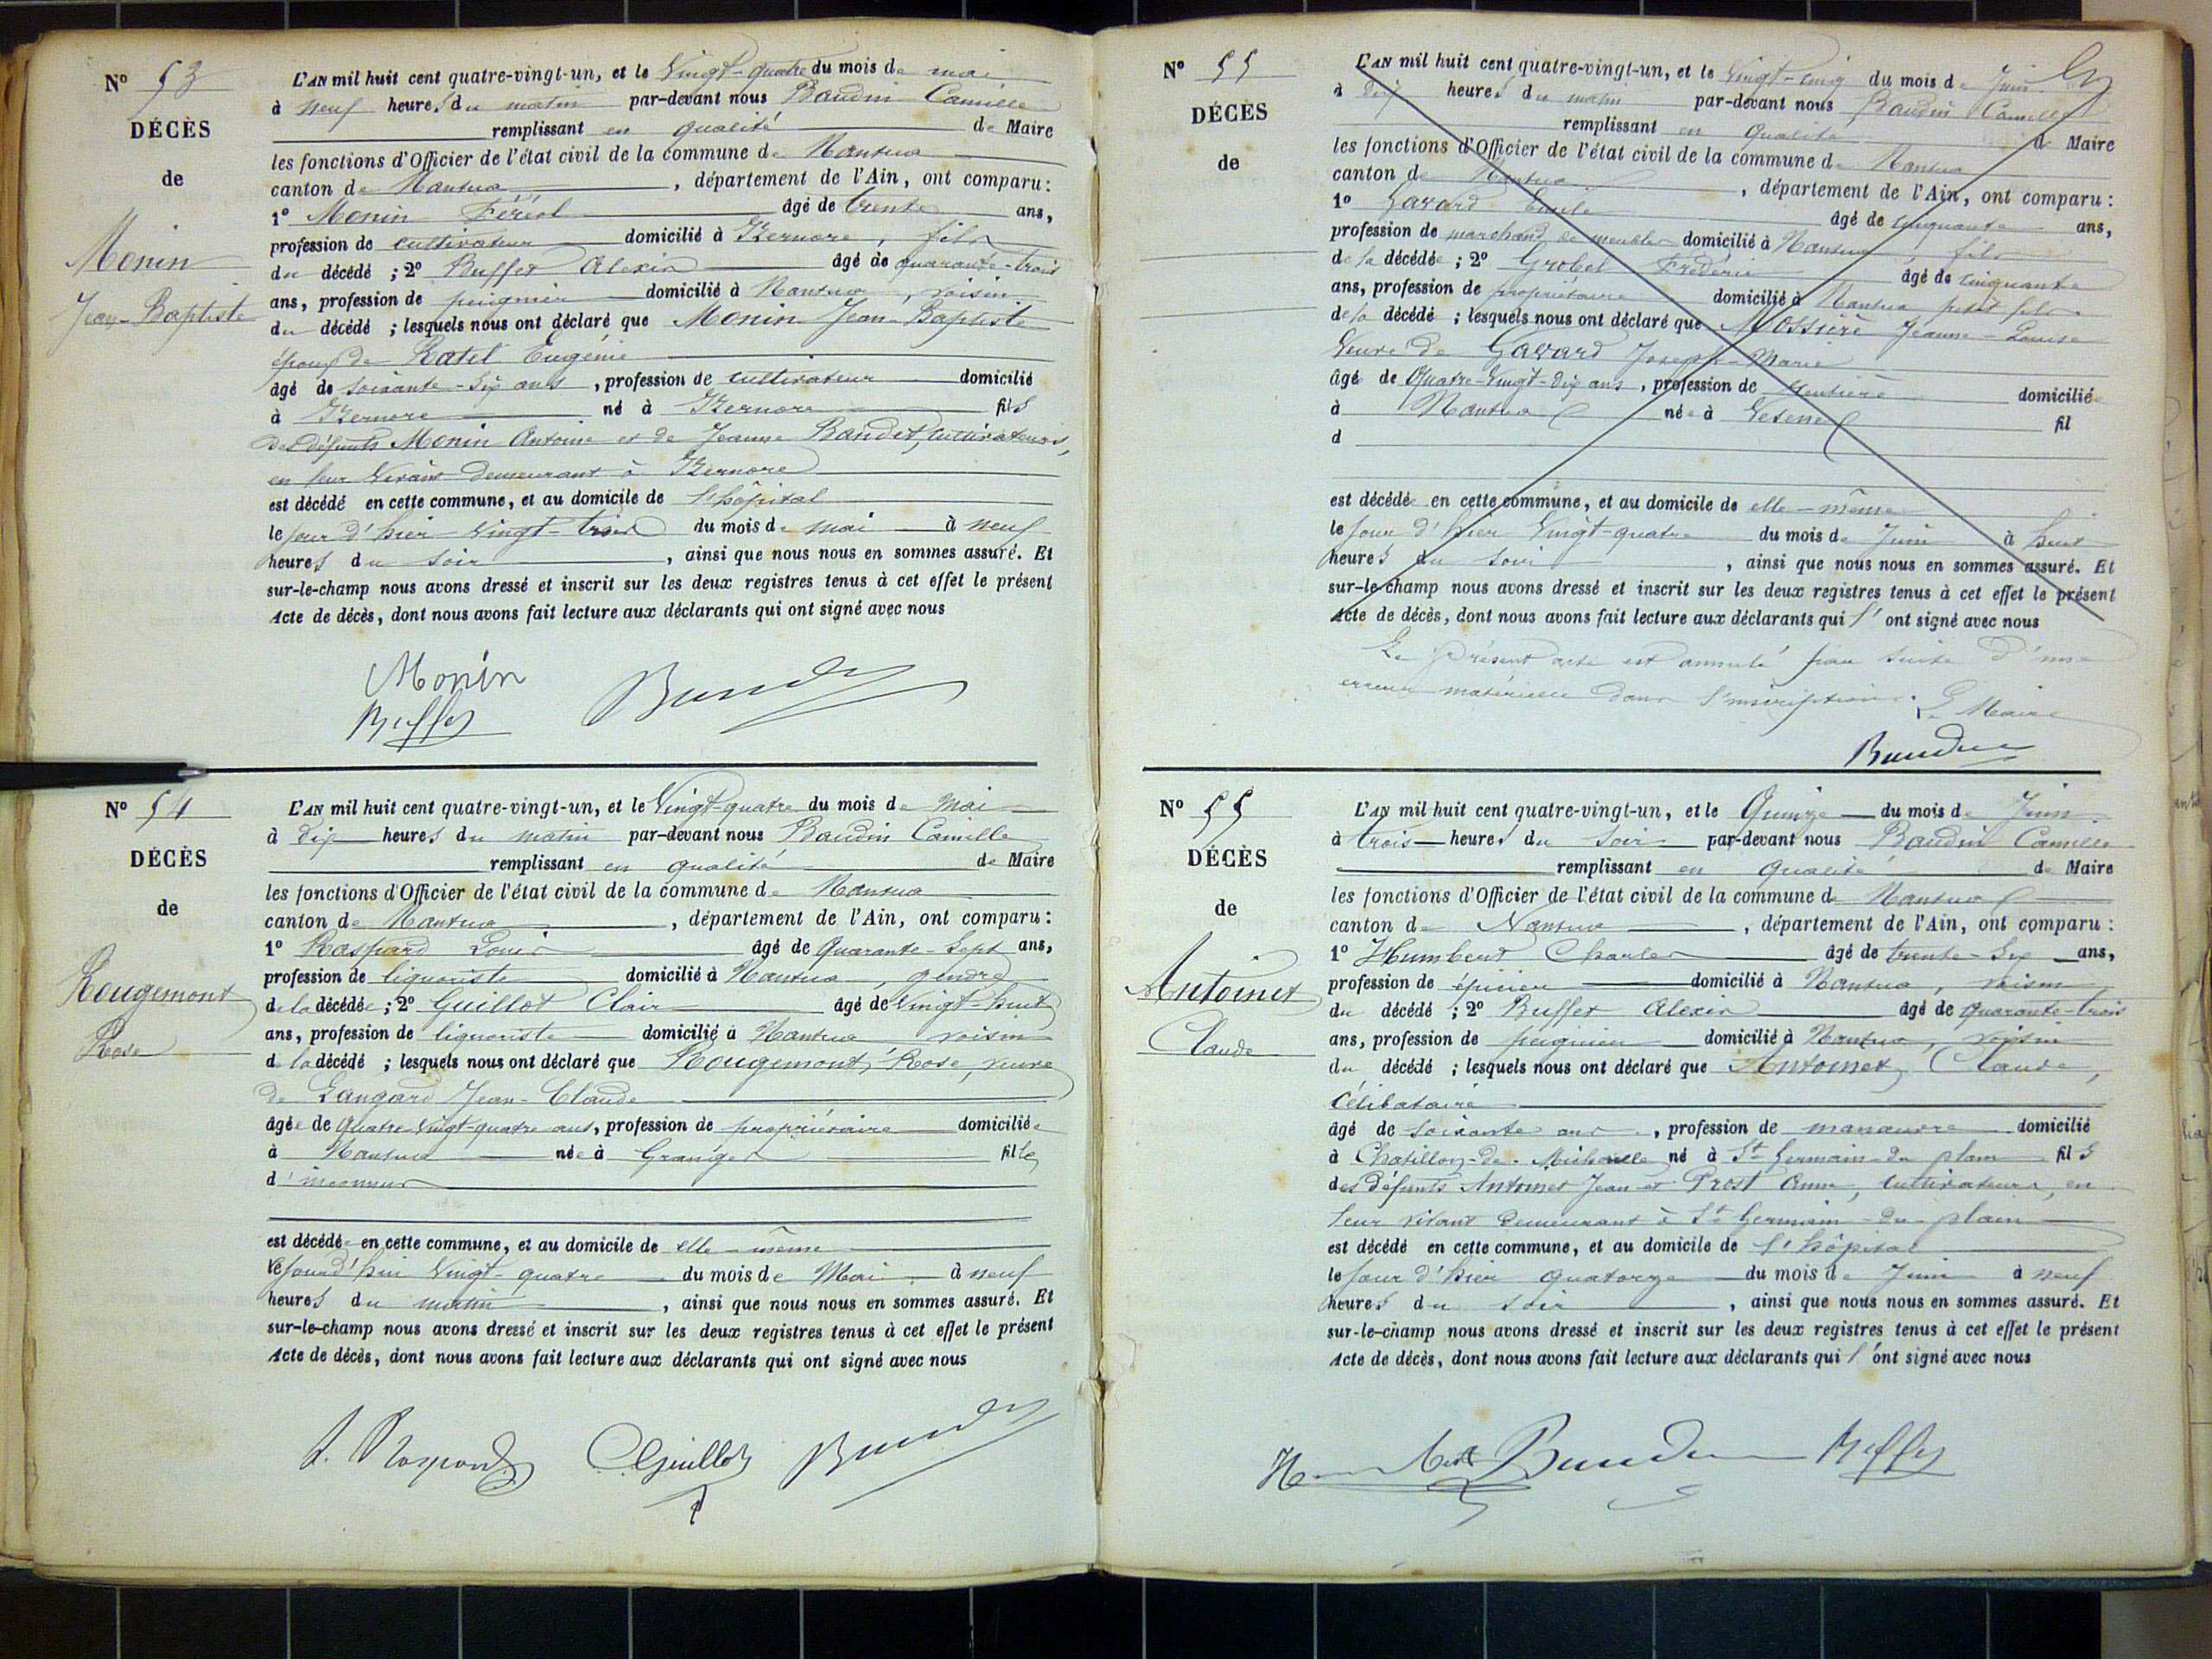 N° 53
DÉCÈS
de
Monin
Jean-Baptiste
L'AN mil huit cent quatre-vingt-un, et le Vingt-quatre du mois de mai
à neuf heures du matin par-devant nous Baudin Camille
remplissant en qualité de Maire
les fonctions d'Officier de l'état civil de la commune de Nantua
canton de Nantua, département de l'Ain, ont comparu:
1° Monin Féréol âgé de trente ans,
profession de cultivateur domicilié à Izernore, fils
du décédé; 2° Buffet Alexis âgé de quarante-trois
ans, profession de peignier domicilié à Nantua, voisin
du décédé; lesquels nous ont déclaré que Monin Jean-Baptiste
époux de Ratel Eugénie
âgé de soixante-six ans, profession de cultivateur domicilié
à Izernore né à Izernore fils
des défunts Monin Antoine et de Jeanne Baudet, cultivateurs,
en leur vivant demeurant à Izernore
est décédé en cette commune, et au domicile de l'hôpital
le jour d'hier vingt-trois du mois de mai à neuf
heures du soir, ainsi que nous nous en sommes assuré. Et
sur-le-champ nous avons dressé et inscrit sur les deux registres tenus à cet effet le présent
Acte de décès, dont nous avons fait lecture aux déclarants qui ont signé avec nous
Monin
Buffet Baudin
N° 54
DÉCÈS
de
Rougemont
Rose
L'AN mil huit cent quatre-vingt-un, et le Vingt-quatre du mois de Mai
à dix heures du matin par-devant nous Baudin Camille
remplissant en qualité de Maire
les fonctions d'Officier de l'état civil de la commune de Nantua
canton de Nantua, département de l'Ain, ont comparu:
1° Raspard Louis âgé de Quarante-Sept ans,
profession de liquoriste domicilié à Nantua, gendre
de la décédée; 2° Guillot Clair âgé de Vingt-huit
ans, profession de liquoriste domicilié à Nantua voisin
de la décédé; lesquels nous ont déclaré que Rougemont Rose, veuve
de Gangard Jean-Claude
âgée de Quatre Vingt-quatre ans, profession de propriétaire domiciliée
à Nantua née à Granges fille
d'inconnus
est décédée en cette commune, et au domicile de elle-même
le jourd'hui Vingt-quatre du mois de Mai à neuf
heures du matin, ainsi que nous nous en sommes assuré. Et
sur-le-champ nous avons dressé et inscrit sur les deux registres tenus à cet effet le présent
Acte de décès, dont nous avons fait lecture aux déclarants qui ont signé avec nous
Guillot Baudin
N° 55
DÉCÈS
de
L'AN mil huit cent quatre-vingt-un, et le Vingt-cinq du mois de Juin
à dix heures du matin par-devant nous Baudin Camille
remplissant en qualité de Maire
les fonctions d'Officier de l'état civil de la commune de Nantua
canton de Nantua, département de l'Ain, ont comparu:
1° Gavard Emile âgé de cinquante ans,
profession de marchand de meubles domicilié à Nantua, fils
de la décédée; 2° Grobel Frédéric âgé de cinquante
ans, profession de propriétaire domicilié à Nantua petit fils
de la décédé; lesquels nous ont déclaré que Mossière Jeanne-Louise
Veuve de Gavard Joseph-Marie
âgé de Quatre-Vingt-dix ans, profession de Rentière domiciliée
à Nantua née à fil
d
est décédée en cette commune, et au domicile de elle-même
le jour d'hier Vingt-quatre du mois de Juin à huit
heures du soir, ainsi que nous nous en sommes assuré. Et
sur-le-champ nous avons dressé et inscrit sur les deux registres tenus à cet effet le présent
Acte de décès, dont nous avons fait lecture aux déclarants qui l'ont signé avec nous
Le présent acte est annulé par suite d'une
erreur matérielle dans l'inscription. Le Maire
Baudin
N° 55
DÉCÈS
de
Antoinet
Claude
L'AN mil huit cent quatre-vingt-un, et le Quinze du mois de Juin
à trois heures du soir par-devant nous Baudin Camille
remplissant en qualité de Maire
les fonctions d'Officier de l'état civil de la commune de Nantua
canton de Nantua, département de l'Ain, ont comparu:
1° Humbert Charles âgé de trente-six ans,
profession de épicier domicilié à Nantua, voisin
du décédé; 2° Buffet Alexis âgé de quarante-trois
ans, profession de peignier domicilié à Nantua, voisin
du décédé; lesquels nous ont déclaré que Antoinet Claude,
Célibataire
âgé de soixante ans, profession de manœuvre domicilié
à Chatillon-de-Michaille né à St Germain-du plain fils
des défunts Antoinet Jean et Prost Anne, cultivateurs, en
leur vivant demeurant à St Germain-du-plain
est décédé en cette commune, et au domicile de l'hôpital
le jour d'hier quatorze du mois de Juin à neuf
heures du soir, ainsi que nous nous en sommes assuré. Et
sur-le-champ nous avons dressé et inscrit sur les deux registres tenus à cet effet le présent
Acte de décès, dont nous avons fait lecture aux déclarants qui l'ont signé avec nous
Humbert Baudin Buffet